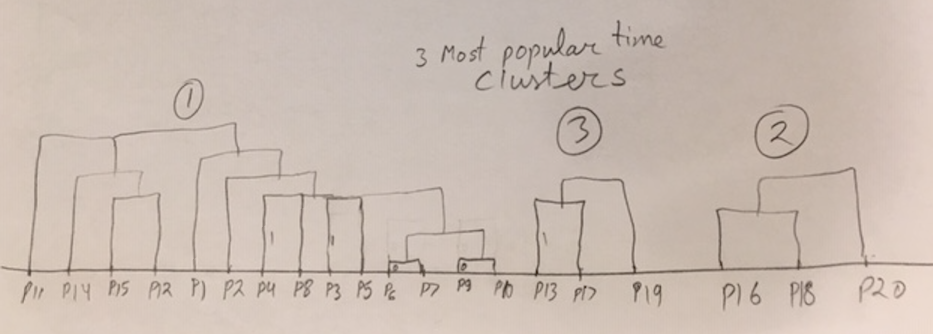 3 Most popular time
clusters
1
3
2
P11 P14 P15 P12 P1 P2 P4 P8 P3 P5 P6 P7 P9 P10 P13 P17 P19 P16 P18 P20